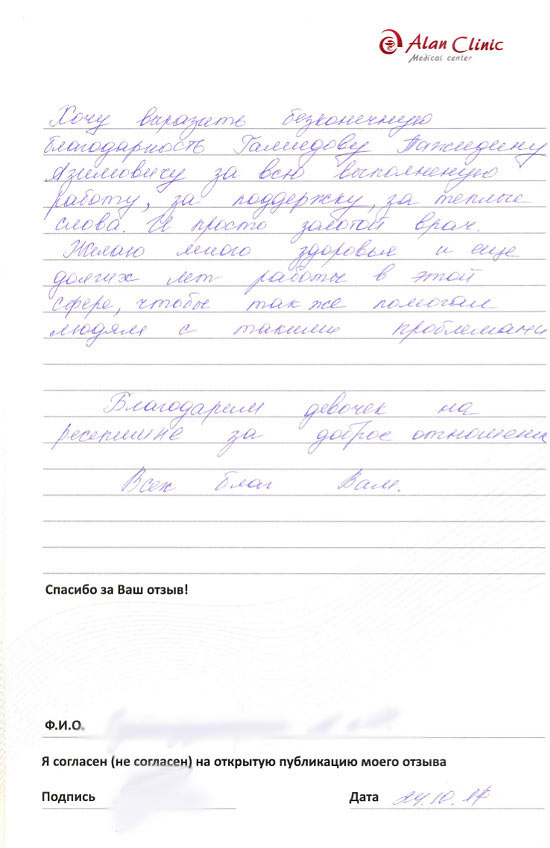 Alan Clinic
Medical center
Хочу выразить безконечную
благодарность Гамидову Тажидину
Азимовичу за всю выполненую
работу, за поддержку, за теплые
слова. И просто золотой врач.
Желаю много здоровья и еще
долгих лет работы в этой
сфере, чтобы так же помогал
людям с такими проблемами
Благодарим девочек на
ресепшине за доброе отношение
Всех благ Вам.
Спасибо за Ваш отзыв!
Ф.И.О.
Я согласен (не согласен) на открытую публикацию моего отзыва
Подпись Дата 24.10.17